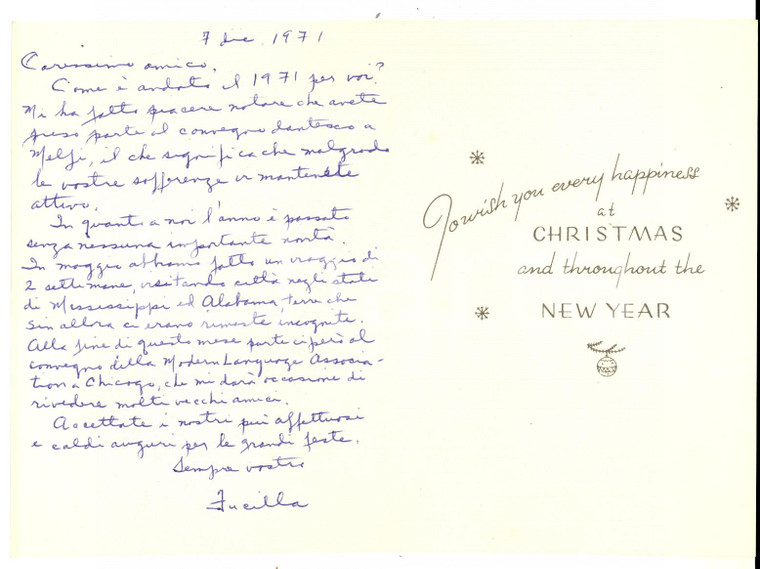 7 dic. 1971
Carissimo amico,
Come è andato il 1971 per voi?
Mi ha fatto piacere notare che avete
preso parte al convegno dantesco a
Melfi, il che significa che malgrado
le vostre sofferenze vi mantenete
attivo.
In quanto a noi l'anno è passato
senza nessuna importante novità.
In maggio abbiamo fatto un viaggio di
2 settimane, visitando città negli stati
di Mississippi ed Alabama, terre che
sin allora ci erano rimaste incognite.
Alla fine di questo mese parteciperò al
convegno della Modern Language Associa-
tion a Chicago, che mi darà occasione di
rivedere molti vecchi amici.
Accettate i nostri più affettuosi
e caldi auguri per le grandi feste.
Sempre vostro
Fucilla
To wish you every happiness
at
CHRISTMAS
and throughout the
NEW YEAR